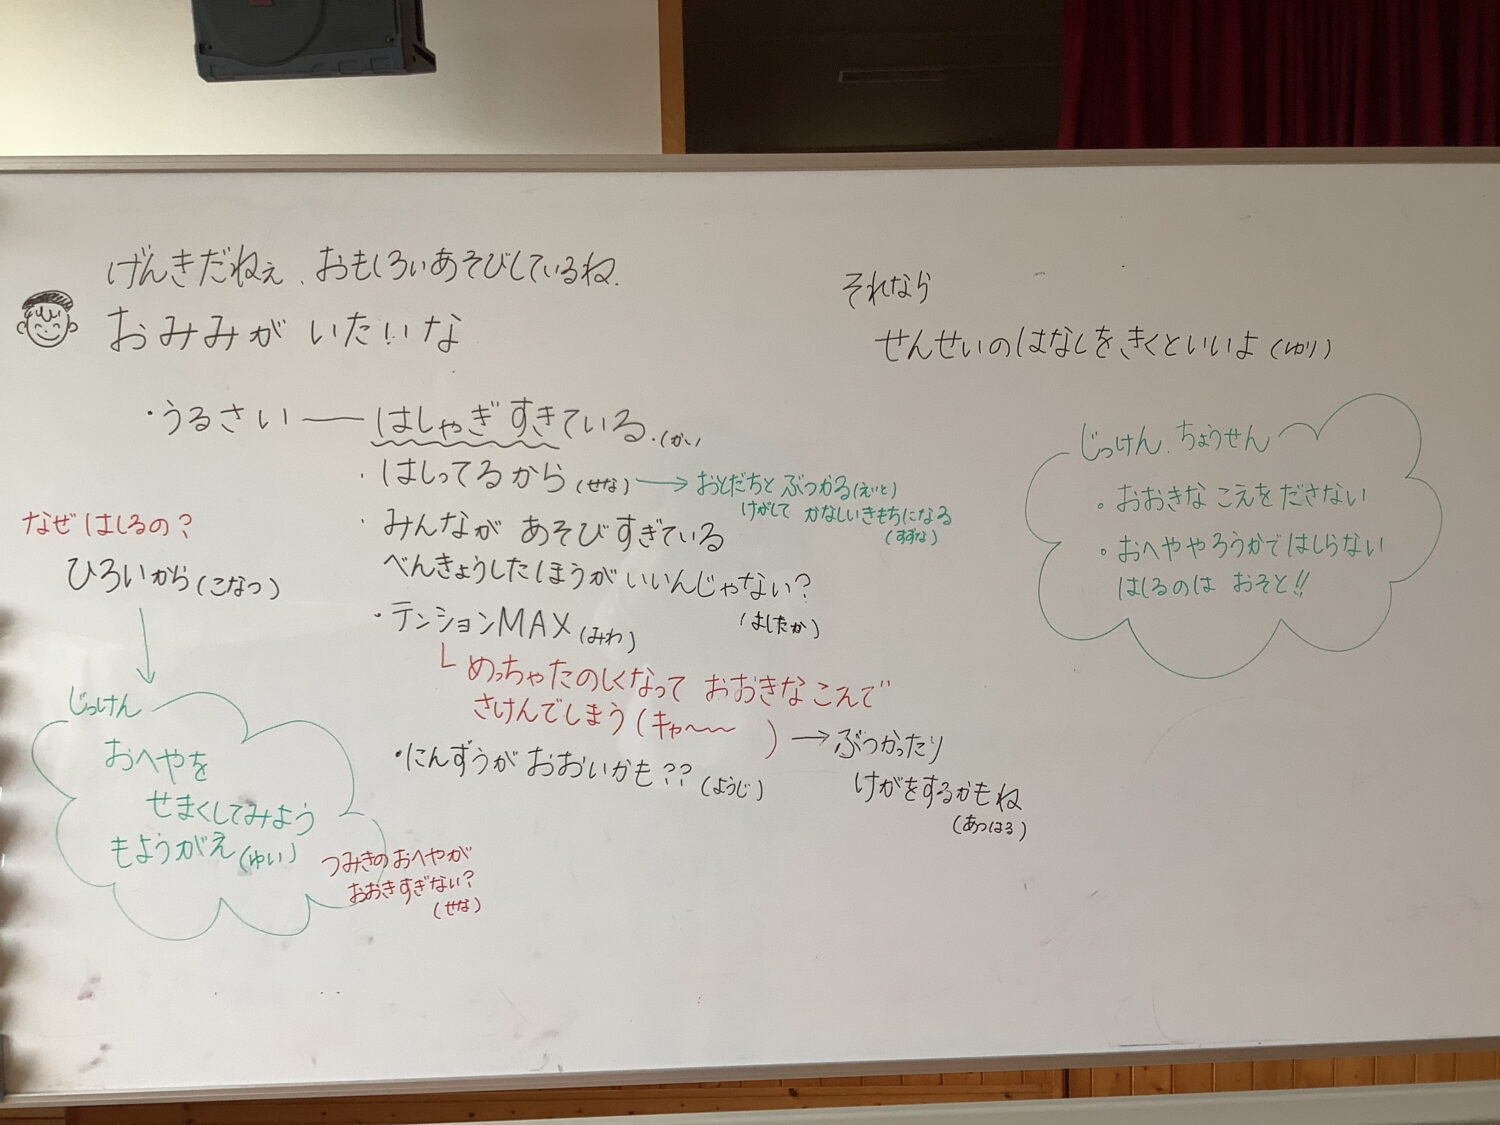 げんきだねぇ、おもしろいあそびしているね.
おみみが いたいな
・うるさい ── はしゃぎすきている.(かい)
・はしってるから(せな) → おともだちと ぶつかる(えいと)
けがして かなしいきもちになる
(すずな)
・みんなが あそびすぎている
べんきょうしたほうがいいんじゃない?
(はしたか)
・テンションMAX(みわ)
└ めっちゃたのしくなって おおきなこえで
さけんでしまう(キャ〜〜 )
→ ぶつかったり
けがをするかもね
(あつはる)
・にんずうが おおいかも??(ようじ)
なぜ はしるの?
ひろいから(こなつ)
↓
じっけん
おへやを
せまくしてみよう
もようがえ(ゆい)
つみきのおへやが
おおきすぎない?
(せな)
それなら
せんせいのはなしをきくといいよ(ゆり)
じっけん、ちょうせん
・おおきな こえを ださない
・おへややろうかで はしらない
はしるのは おそと!!